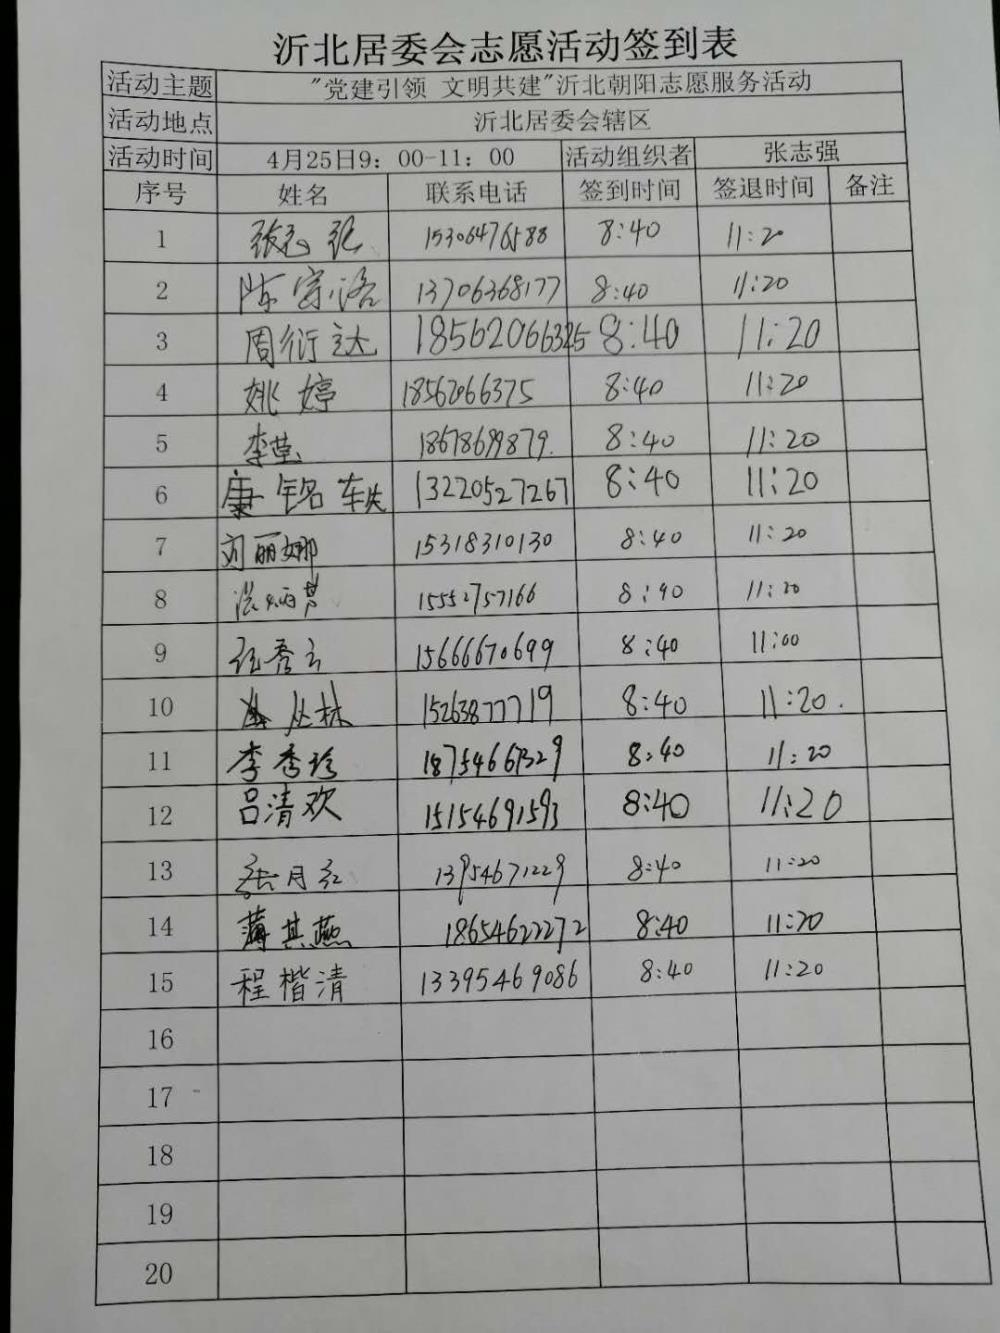 沂北居委会志愿活动签到表
活动主题 "党建引领 文明共建"沂北朝阳志愿服务活动
活动地点 沂北居委会辖区
活动时间 4月25日9：00-11：00 活动组织者 张志强
序号 姓名 联系电话 签到时间 签退时间 备注
1 15306476588 8:40 11:20
2 陈宗洛 13706368177 8:40 11:20
3 周衍达 18562066325 8:40 11:20
4 姚婷 18562066375 8:40 11:20
5 李莹 18678699879. 8:40 11:20
6 康铭轶 13220527267 8:40 11:20
7 刘丽娜 15318310130 8:40 11:20
8 15552757166 8:40 11:20
9 15666670699 8:40 11:00
10 丛林 15263877719 8:40 11:20.
11 李秀珍 18754667329 8:40 11:20
12 吕清欢 15154691593 8:40 11:20
13 月红 13954671229 8:40 11:20
14 薄其燕 18654622272 8:40 11:20
15 程楷清 13395469086 8:40 11:20
16
17
18
19
20